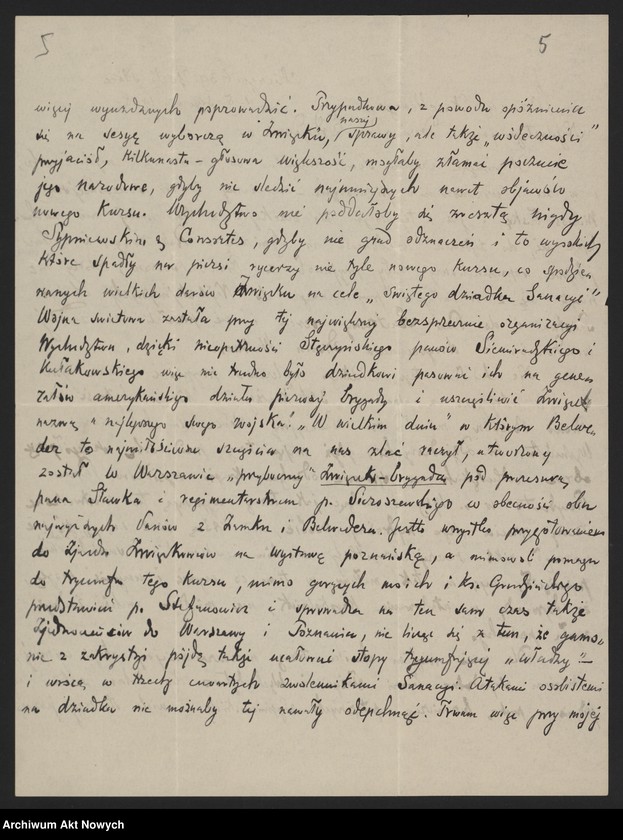 5 5
więcej wyuzdanych poprowadzić. Przypadkowa, z powodu opóźnienia
się na sesyę wyborczą w Związku, naszej sprawy, ale także „wdzięczności"
przyjaciół, kilkunasto-głosowa większość, mogłaby złamać poczucie
jego narodowe, gdyby nie śledzić najmniejszych nawet objawów
nowego kursu. Wychodztwo nie poddałoby się zresztą nigdy
Sypniewskim et Consortes, gdyby nie grad odznaczeń i to wysokich,
które spadły na piersi rycerzy nie tyle nowego kursu, co spodzie-
wanych wielkich darów Związku na cele „świętego dziadka Sanacyi"
Wojna światowa zastała przy tej największej bezsprzecznie organizacyi
Wychodztwa, dzięki nieopatrzności panów Siemiradzkiego i
Kułakowskiego więc nie trudno było dziadkowi pasować ich na gene-
rałów amerykańskiego działu pierwszej brygady i uszczęśliwić Związek
nazwą „najlepszego swego wojska! „W wielkim dniu" w którym Belwe-
der to najmiłościwsze szczęście na nas zlać raczył, utworzony
został w Warszawie „przyboczny" Związek-brygada pod prezesurą
pana Sławka i regimentarstwem p. Sieroszewskiego w obecności obu
najwyższych Panów z Zamku i Belwederu. Jestto wszystko przygotowaniem
do Zjazdu Związkowców na wystawę poznańską, a mimowoli pomaga
do tryumfu tego kursu, mimo gorących moich i ks. Grudzińskiego
przedstawień p. Stefanowicz i sprowadza na ten sam czas także
Zjednoczeńców do Warszawy i Poznania, nie licząc się z tem, że
nie z zakrystyi pójdą także ucałować stopy tryumfującej „władzy"—
i wrócą w trzech czwartych zwolennikami Sanacyi. Atakami osobistemi
na dziadka nie możnaby tej nawały odepchnąć. Trwam więc przy mojej
Archiwum Akt Nowych